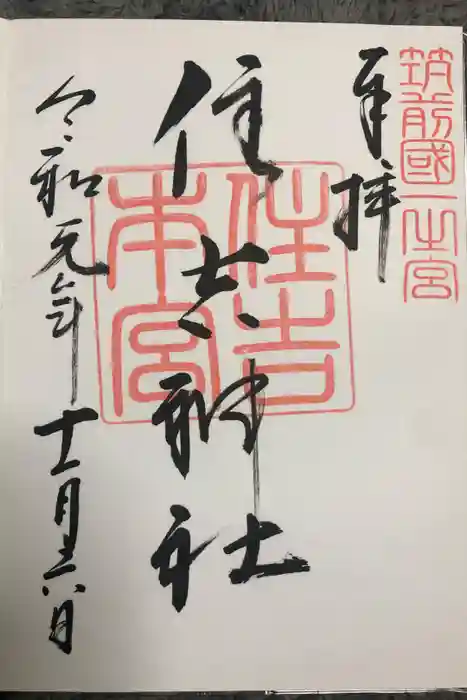 筑前國一之宮
奉拝
住吉神社
住吉本宮
令和元年十一月日